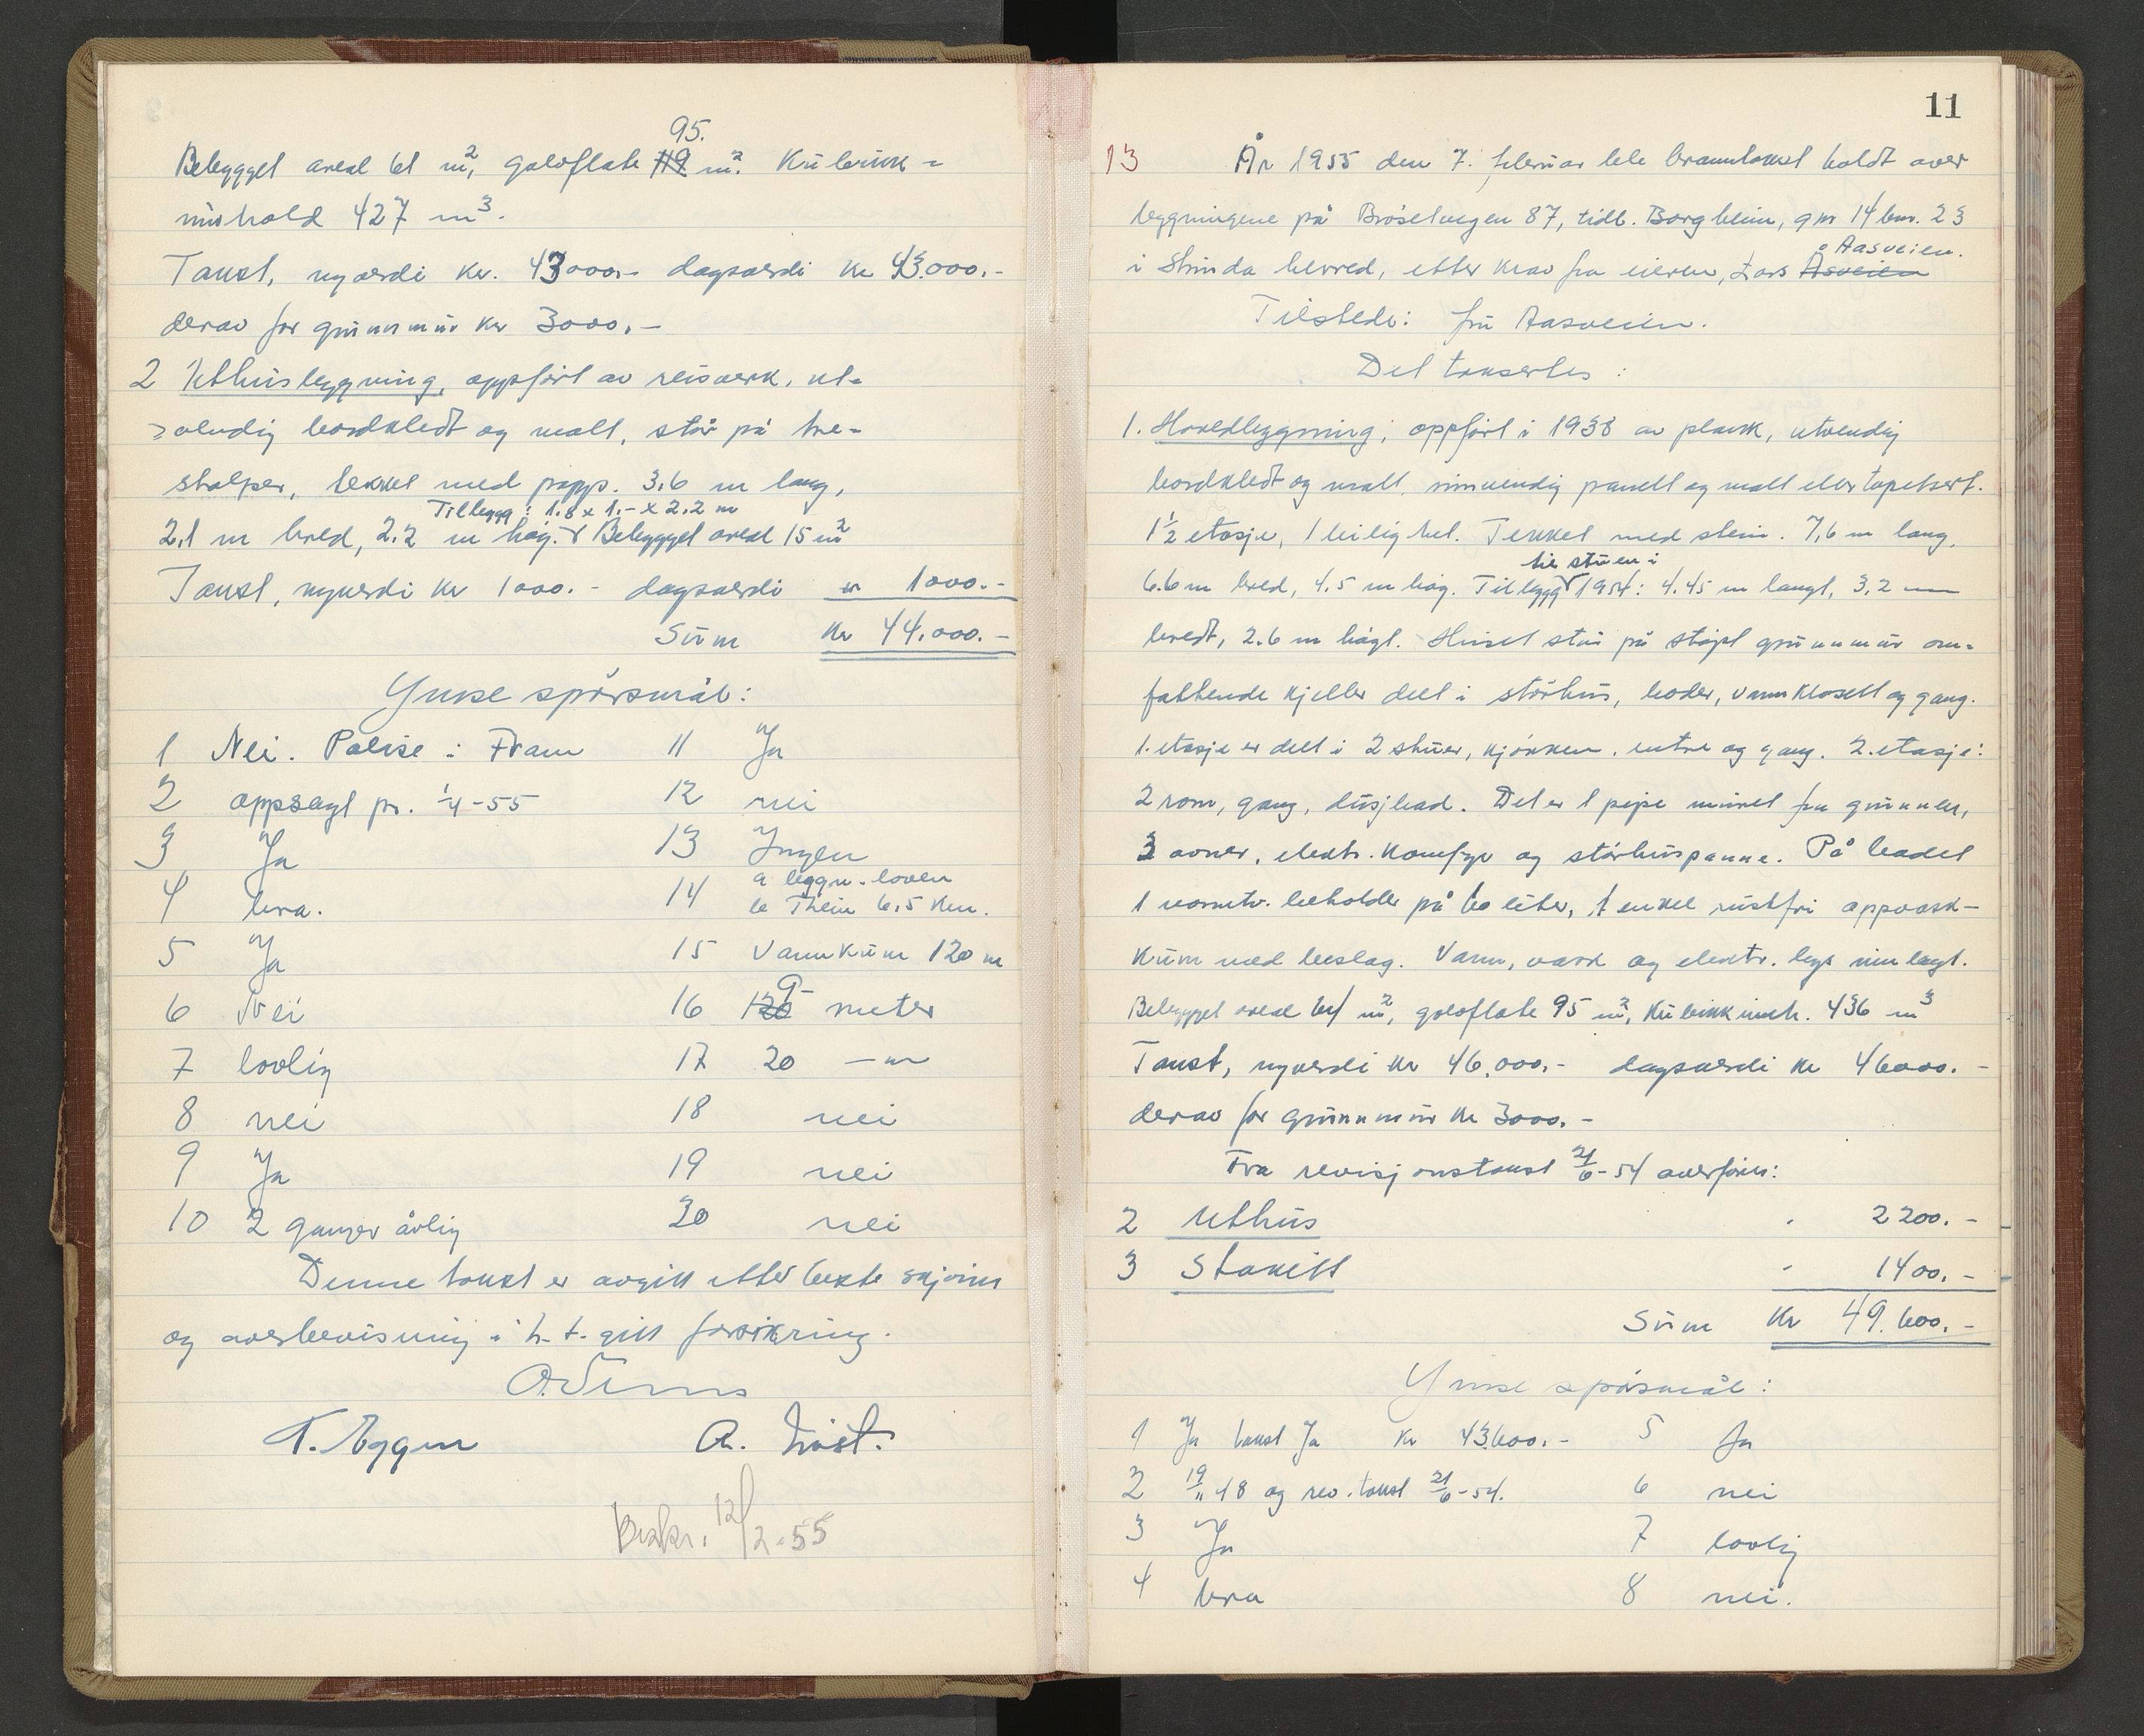 95.
Bebygget areal 61 m², golvflate 119 m². Kubikk-
innhold 427 m³.
Takst, nyverdi kr. 43000.- dagsverdi kr 43.000.-
derav for grunnmur kr 3000.-
2 Uthusbygning, oppført av reisverk, ut-
vendig bordkledt og malt, står på tre-
stolper, tekket med papp. 3,6 m lang,
Tillegg: 1.8 x 1.- x 2.2 m
2,1 m bred, 2.2 m høg. Bebygget areal 15 m²
Takst, nyverdi kr 1000.- dagsverdi kr 1000.-
Sum kr 44.000.-
Ymse spørsmål:
1 Nei. Polise i Fram 11 Ja
2 oppsagt pr. 1/4-55 12 nei
3 Ja 13 Ingen
4 bra. 14 a bygn.loven
b Theim 6,5 km.
5 Ja 15 Vannkum 120 m
6 Nei 16 9 meter
7 lovlig 17 20 —"—
8 nei 18 nei
9 Ja 19 nei
10 2 ganger årlig 20 nei
Denne takst er avgitt etter beste skjønn
og overbevisning i h.t. gitt forsikring.
T. Eggen A.
Beskr. 12/2-55
11
13 År 1955 den 7. februar ble branntakst holdt over
bygningene på Brøsetvegen 87, tidl. Borgheim, gnr 14 bnr. 23
Aasveien.
i Strinda herred, etter krav fra eieren, Lars Åsveien
Tilstede: fru Aasveien.
Det taksertes:
1. Hovedbygning, oppført i 1938 av plank, utvendig
bordkledt og malt, innvendig panelt og malt eller tapetsert.
1½ etasje, 1 leilighet. Tekket med stein. 7,6 m lang,
til stuen i
6.6 m bred, 4,5 m høg. Tillegg 1954: 4.45 m langt, 3,2 m
bredt, 2.6 m høgt. Huset står på støpt grunnmur om-
fattende kjeller delt i størhus, boder, vannklosett og gang.
1. etasje er delt i 2 stuer, kjøkken, entre og gang. 2. etasje:
2 rom, gang, dusjbad. Det er 1 pipe muret fra grunnen,
3 ovner, elektr. komfyr og størhuspanne. På badet
1 varmtv. beholder på 60 liter, 1 enkel rustfri oppvask-
kum med beslag. Vann, vask og elektr. lys innlagt.
Bebygget areal 64 m², golvflate 95 m², kubikkinnh. 436 m³
Takst, nyverdi kr 46.000.- dagsverdi kr 46000.-
derav for grunnmur kr 3000.-
Fra revisjonstakst 21/6-54 overføres:
2 Uthus " 2200.-
3 Stakitt " 1400.-
Sum kr 49.600.-
Ymse spørsmål:
1 Ja takst Ja kr 43.600.- 5 Ja
2 19/11 48 og rev.takst 21/6-54. 6 nei
3 Ja 7 lovlig
4 bra 8 nei.